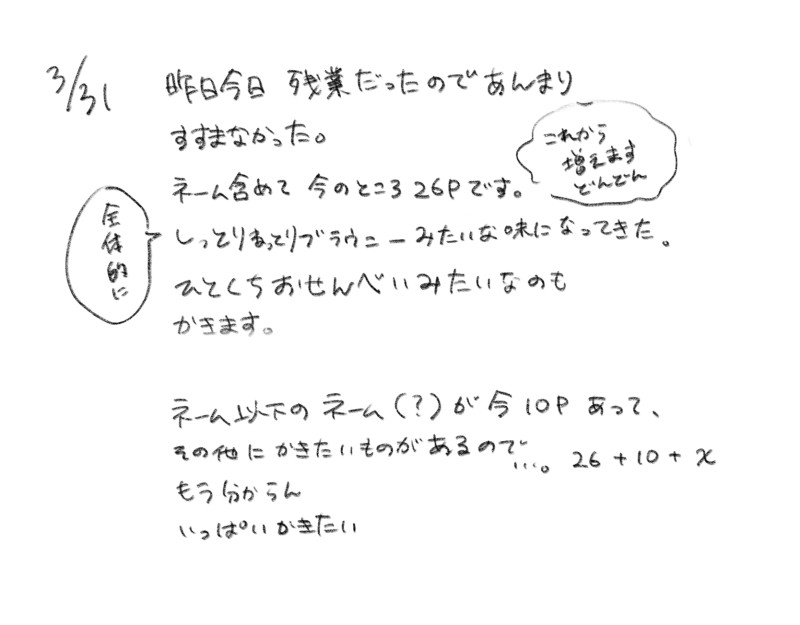 3/31
昨日今日 残業だったのであんまり
すすまなかった。
これから
増えます
どんどん
ネーム含めて 今のところ26Pです。
全体的に
しっとりねっとりブラウニーみたいな味になってきた。
ひとくちおせんべいみたいなのも
かきます。
ネーム以下の ネーム(?)が今10P あって、
その他にかきたいものがあるので…。 26+10+x
もう分からん
いっぱいかきたい